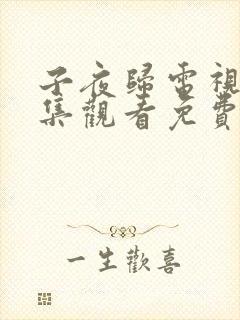 子夜歸電視
集觀看免費
一生歡喜